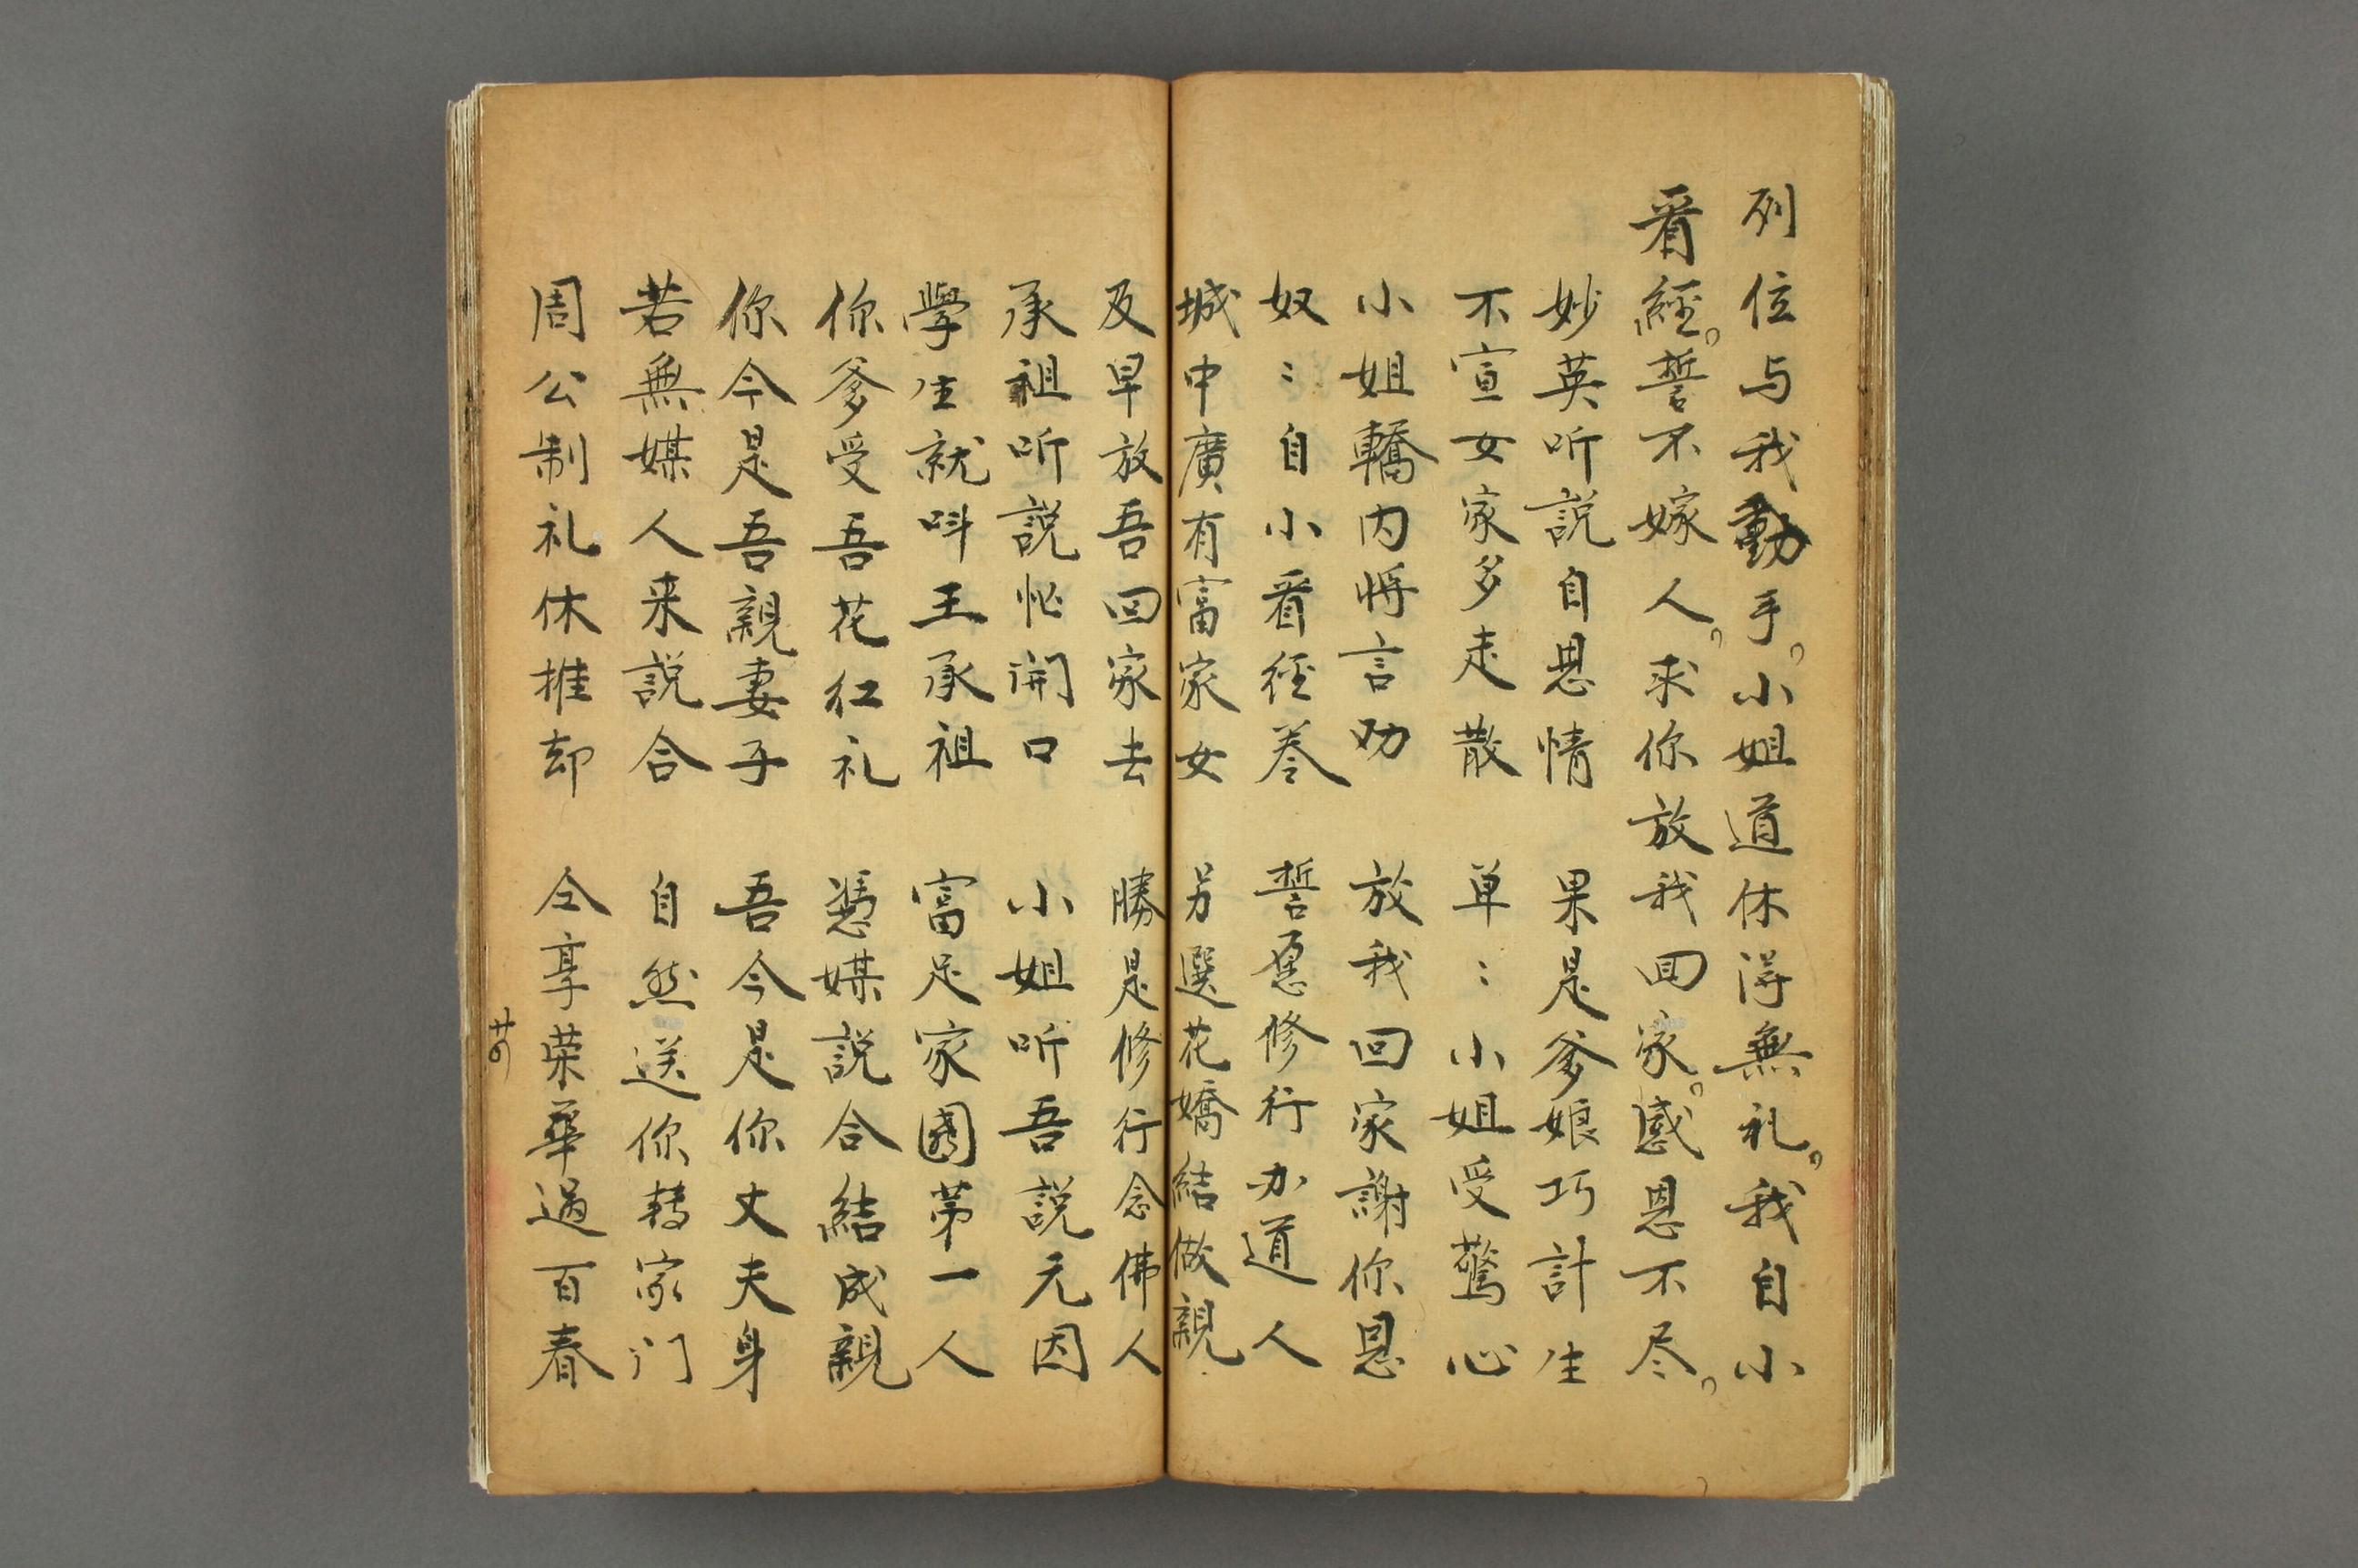 列位与我動手。小姐道休得無礼。我自小
看經。誓不嫁人。求你放我回家。感恩不尽。
妙英听説自思情　果是爹娘巧計生
不宣女家多走散　单〻小姐受驚心
小姐轎内將言劝　放我回家謝你恩
奴〻自小看径卷　誓愿修行办道人
城中廣有富家女　另選花嬌結做親
及早放吾回家去　勝是修行念佛人
承祖听説忙開口　小姐听吾説元因
學生就呌王承祖　富足家國第一人
你爹受吾花红礼　憑媒説合結成親
你今是吾親妻子　吾今是你丈夫身
若無媒人来説合　自然送你轉家门
周公制礼休推却　仝享荣華過百春